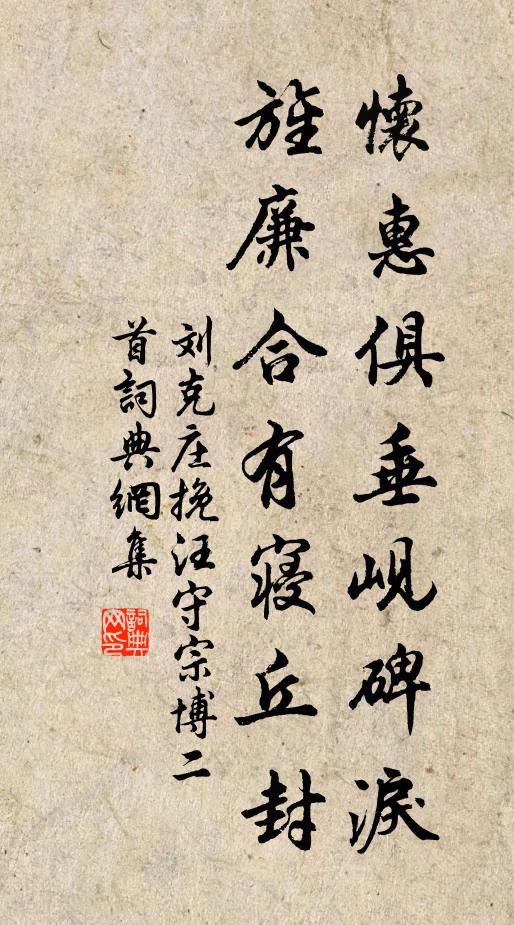 懷惠俱垂峴碑淚
旌廉合有寢丘封
刘克庄挽汪守宗博二
首詞典網集
詞典
网印